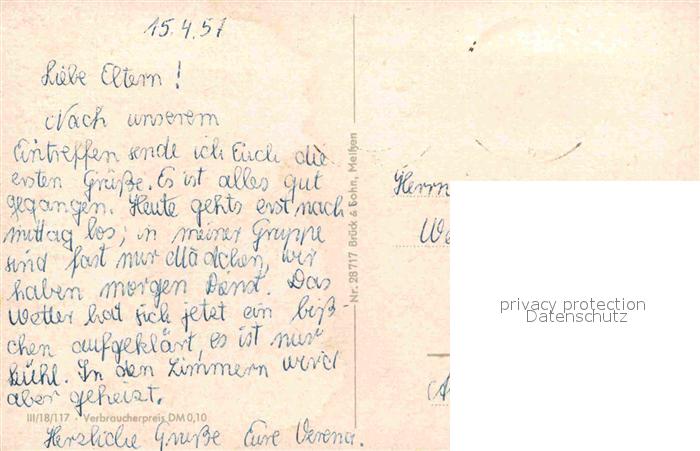 15.4.57
Liebe Eltern!
Nach unserem
Eintreffen sende ich Euch die
ersten Grüße. Es ist alles gut
gegangen. Heute gehts erst nach
mittag los; in meiner Gruppe
sind fast nur Mädchen, wir
haben morgen Dienst. Das
Wetter hat sich jetzt ein biß
chen aufgeklärt, es ist nur
kühl. In den Zimmern wird
aber geheizt.
III/18/117 · Verbraucherpreis DM 0,10
Herzliche Grüße Eure Verena.
Nr. 28717 Brück & Sohn, Meißen
Herrn
We
privacy protection
Datenschutz